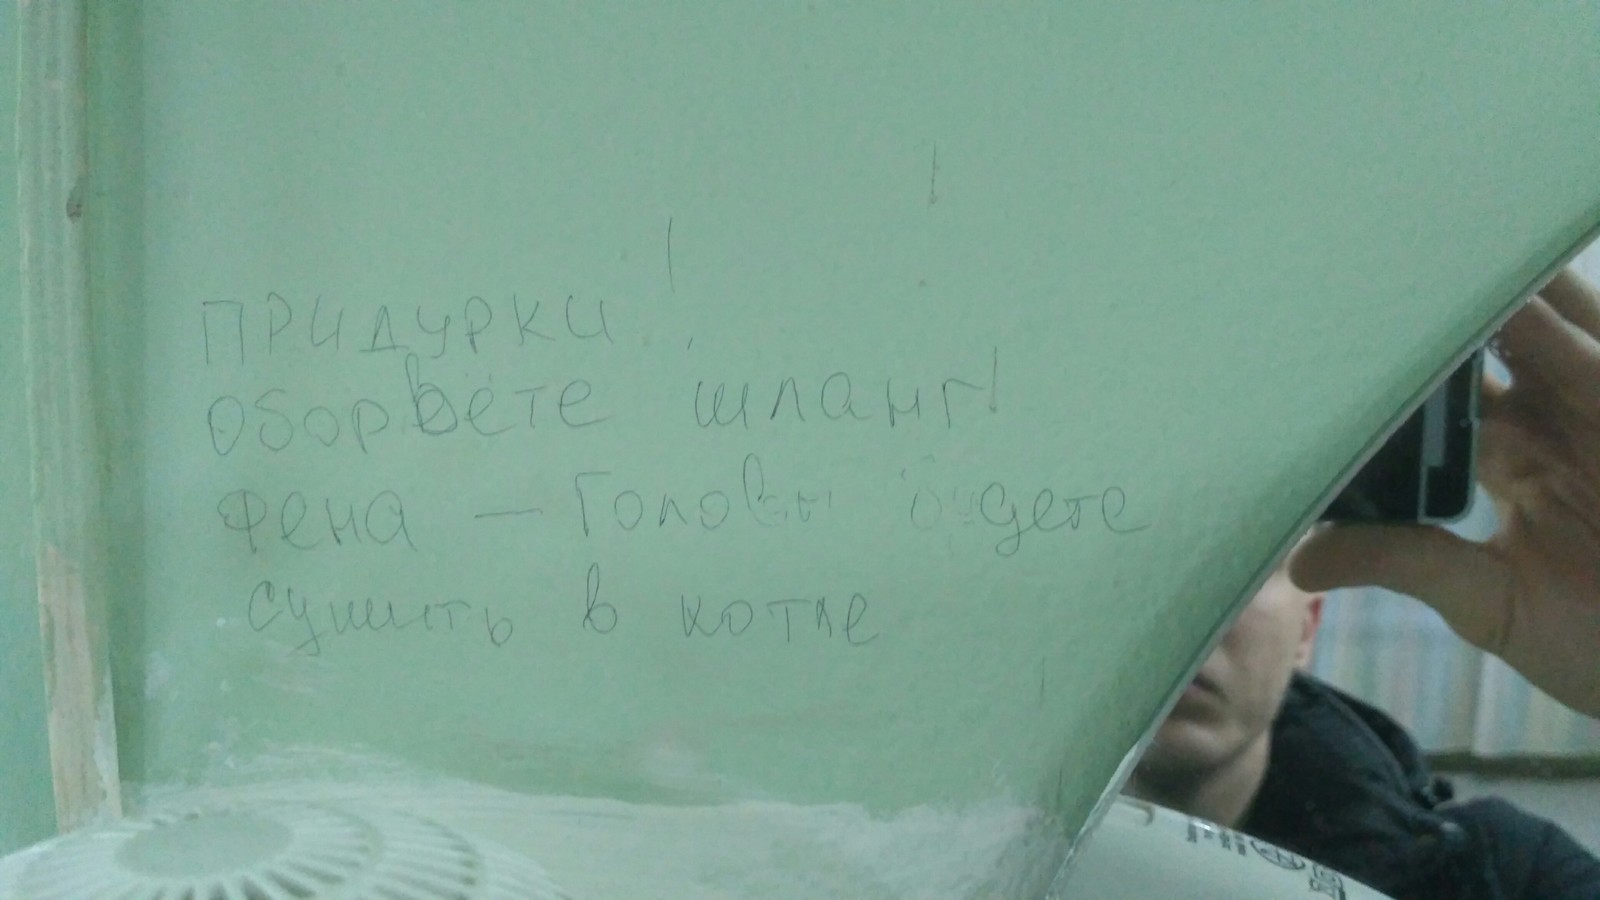 ПРИДУРКИ!
Оборвёте шланг!
Фена — Головы будете
сушить в котле